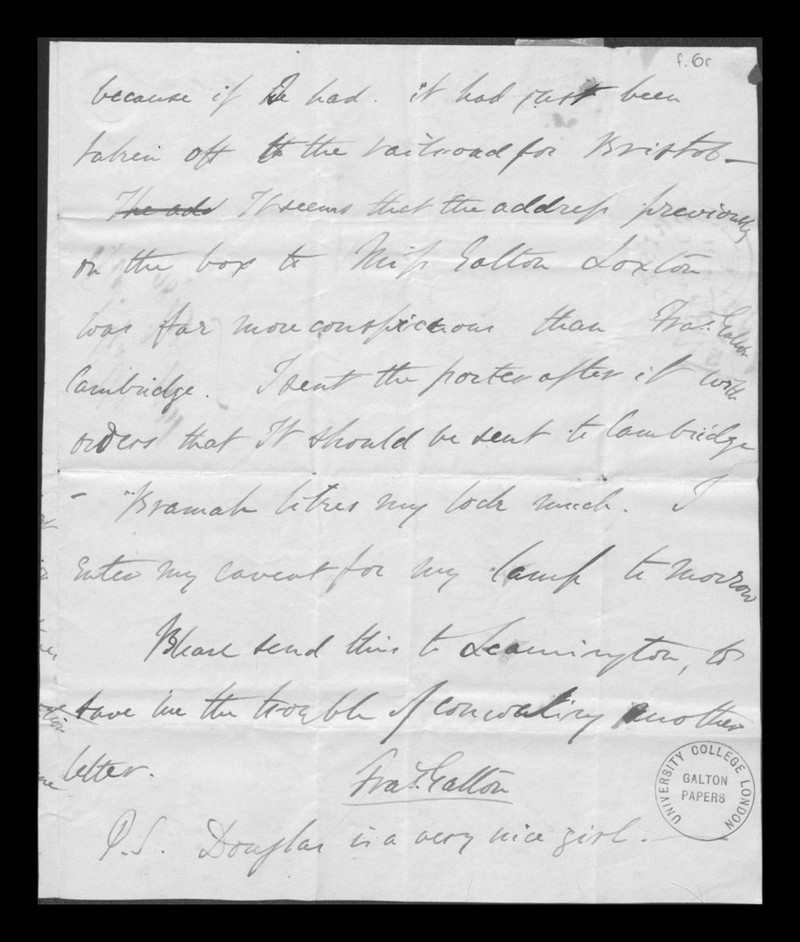 f.6r
because if he had. it had just been
taken off to the railroad for Bristol —
The add It seems that the address previously
on the box to Miss Galton Loxton
was far more conspicuous than Fras. Galton
Cambridge. I sent the porter after it with
orders that It should be sent to Cambridge
- Bramah likes my lock much. I
enter my caveat for my lamp to morrow
Please send this to Leamington, to
save me the trouble of concocting another
letter.
Fras. Galton
P.S. Douglas is a very nice girl.
UNIVERSITY COLLEGE LONDON
GALTON
PAPERS